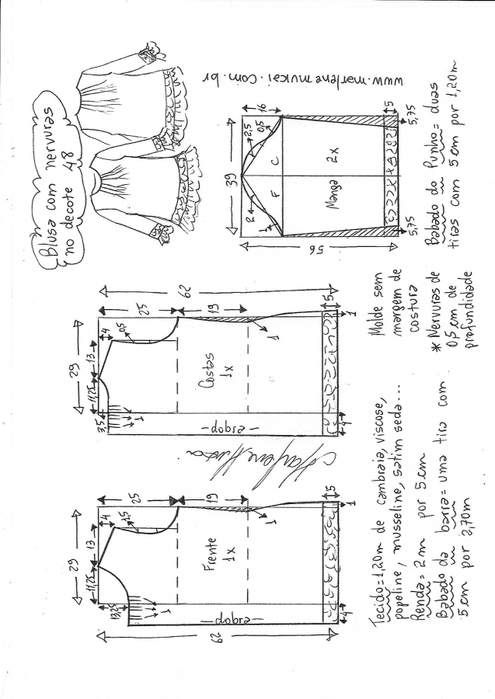 Blusa com nervuras
no decote 48
www.marlenemukai.com.br
39
16
2,5
0,5
2
1
F
C
Manga
2x
56
5
5,75
5,75
Babado do Punho = duas
tiras com 5cm por 1,20m
62
25
19
29
13
4
11,25
3,5
0,5
1
Costas
1x
dobra
1
5
1
4
Molde sem
margem de
costura
* Nervuras de
0,5cm de
profundidade
Marlene Mukai
25
19
29
13
4
11,25
13,25
1,5
1
Frente
1x
dobra
1
5
1
4
62
Tecido = 1,20m de cambraia, viscose,
popeline, musseline, satim seda...
Renda = 2m por 5cm
Babado da barra = uma tira com
5cm por 2,70m